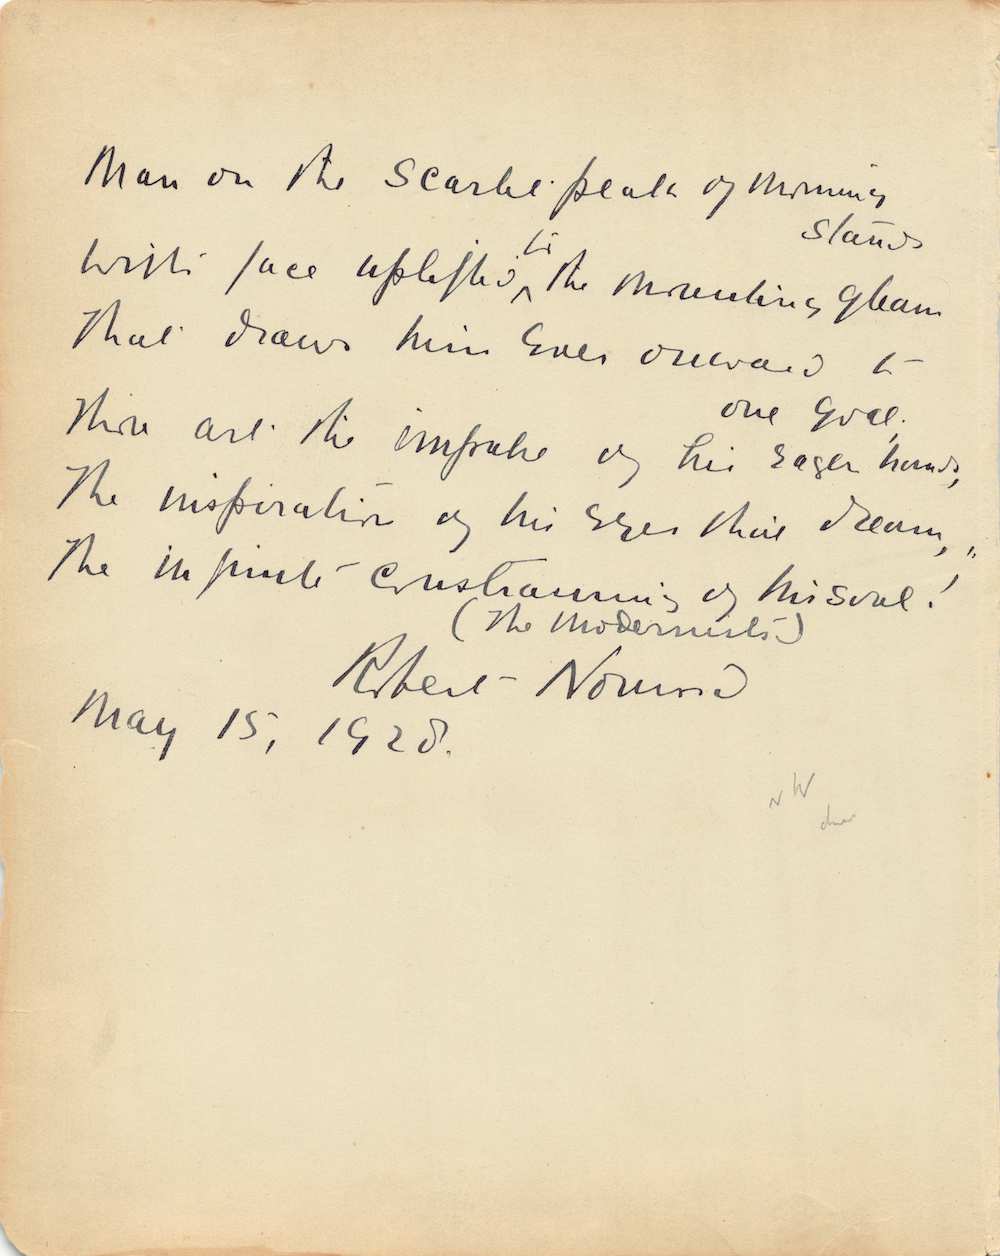 Man on the Scarlet peaks of Morning
stands
With face uplifted ^to the mounting gleam
That draws him Ever onward to
one Goal.
Thou art the impulse of his Eager hands,
The inspiration of his Eyes that dream,
The infinite constraining of his soul!"
(The Modernists)
Robert Norwood
May 15, 1928.